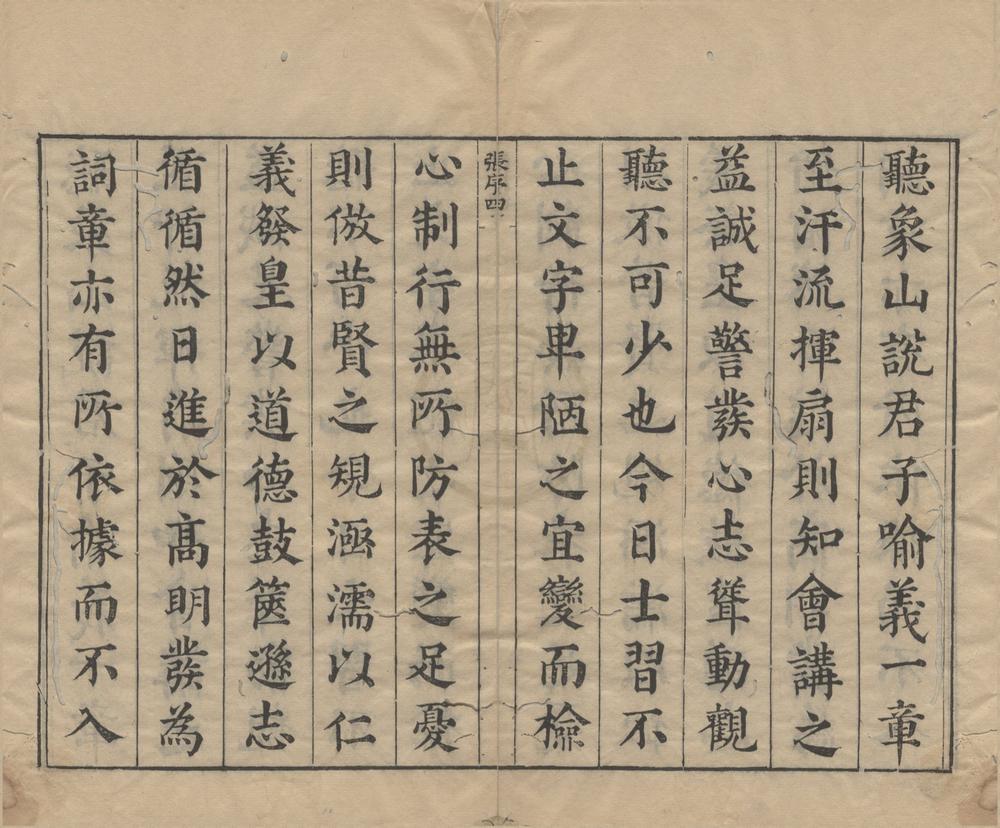 聽象山說君子喻義一章
至汗流揮扇則知會講之
益誠足警發心志聳動觀
聽不可少也今日士習不
止文字卑陋之宜變而檢
張序四
心制行無所防表之足憂
則倣昔賢之規涵濡以仁
義發皇以道德鼓篋遜志
循循然日進於高明發為
詞章亦有所依據而不入